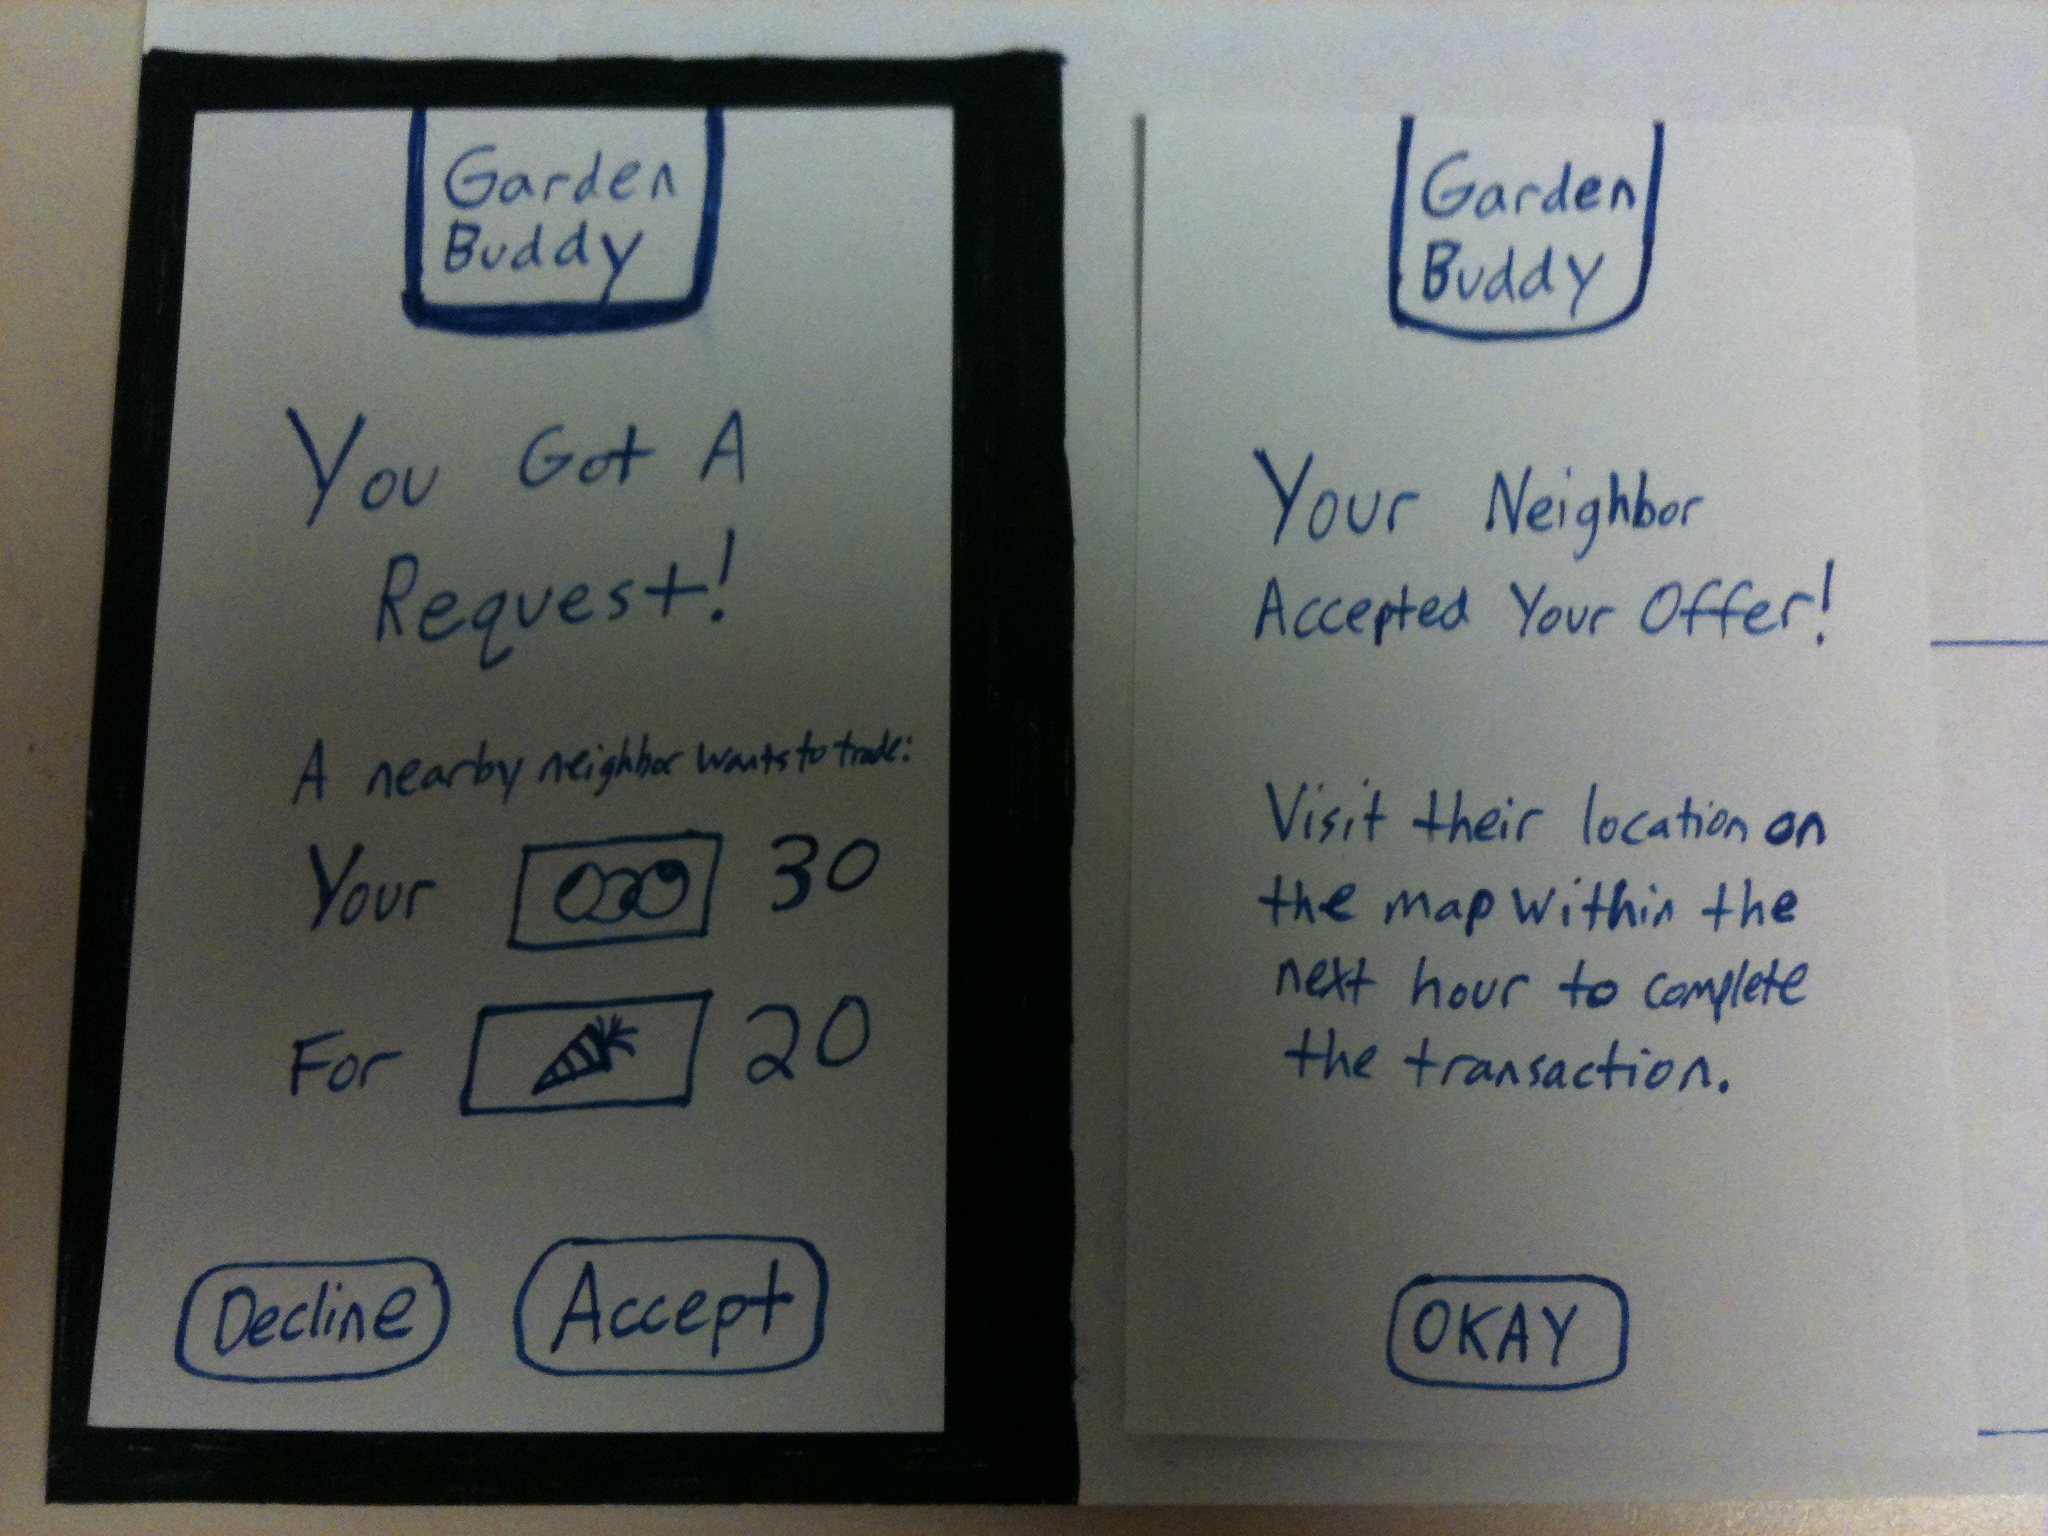 Garden
Buddy
You Got A
Request!
A nearby neighbor wants to trade:
Your 30
For 20
Decline Accept
Garden
Buddy
Your Neighbor
Accepted Your Offer!
Visit their location on
the map within the
next hour to complete
the transaction.
OKAY